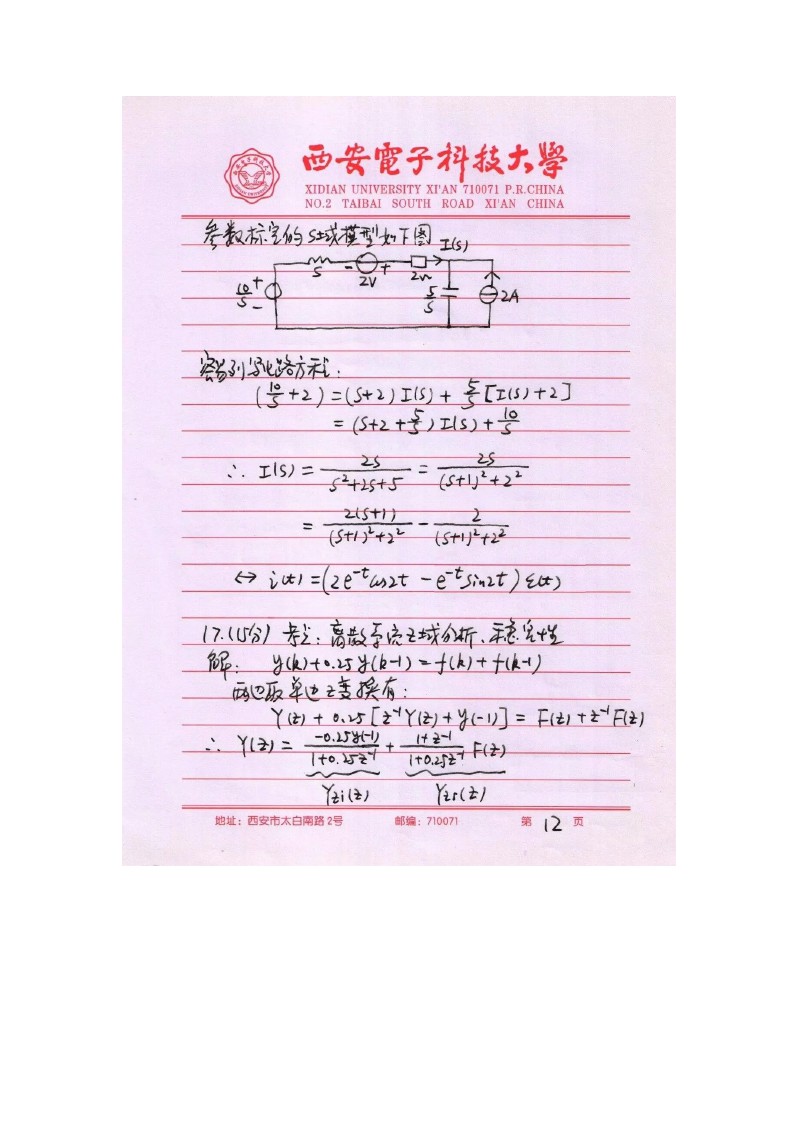 西安電子科技大學
XIDIAN UNIVERSITY XI'AN 710071 P.R.CHINA
NO.2 TAIBAI SOUTH ROAD XI'AN CHINA
参数标定的S域模型如下图
I(s)
S - + 2V 2Ω
10/S + - 5/S 2A
容易列写电路方程:
(10/S + 2) = (S+2) I(s) + 5/S [I(s) + 2]
= (S+2+5/S) I(s) + 10/S
∴ I(s) = 2S/(S²+2S+5) = 2S/((S+1)²+2²)
= 2(S+1)/((S+1)²+2²) - 2/((S+1)²+2²)
↔ i(t) = (2e^{-t}cos2t - e^{-t}sin2t) ε(t)
17.(15分) 考查: 离散系统Z域分析、稳定性
解: y(k)+0.25y(k-1) = f(k)+f(k-1)
两边取单边Z变换有:
Y(z) + 0.25[z⁻¹Y(z) + y(-1)] = F(z) + z⁻¹F(z)
∴ Y(z) = -0.25y(-1)/(1+0.25z⁻¹) + (1+z⁻¹)/(1+0.25z⁻¹) F(z)
Yzi(z) Yzs(z)
地址: 西安市太白南路2号 邮编: 710071 第 12 页